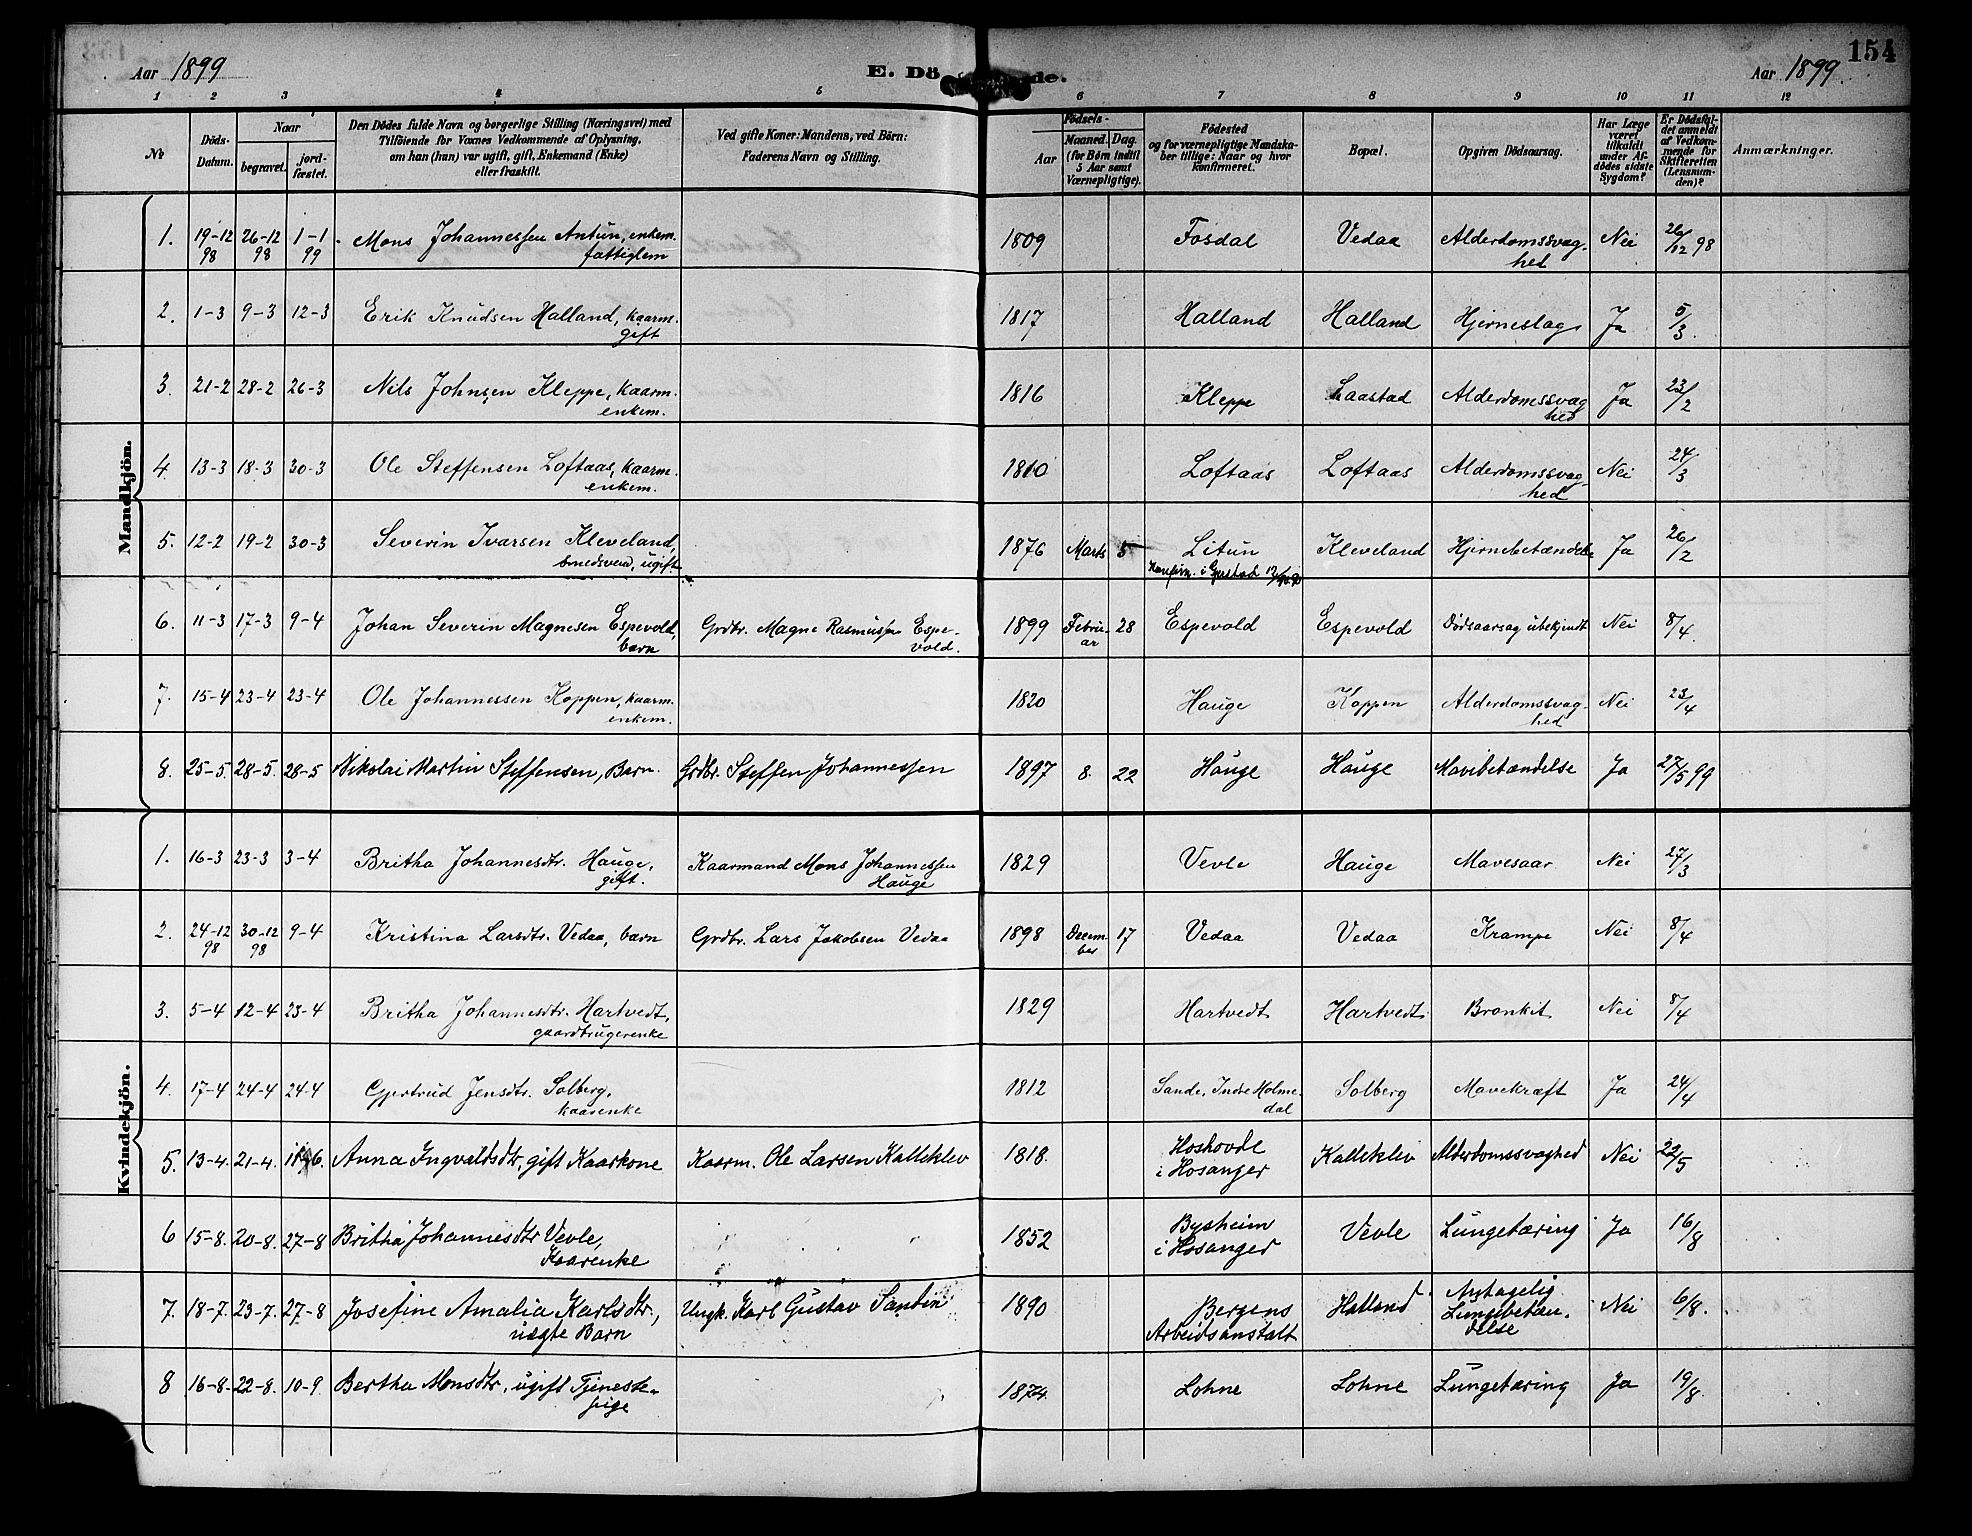 Aar 1899 E. Dö de. Aar 1899. 154
1 2 3 4 5 6 7 8 9 10 11 12
No
Döds-Datum.
Naar
begravet.
jord-fæstet.
Den Dödes fulde Navn og borgerlige Stilling (Næringsvei) med
Tilföiende for Voxnes Vedkommende af Oplysning,
om han (hun) var ugift, gift, Enkemand (Enke)
eller fraskilt.
Ved gifte Koner: Mandens, ved Börn:
Faderens Navn og Stilling.
Födsels-
Aar
Maaned. Dag.
(for Börn indtil
5 Aar samt
Værnepligtige).
Födested
og for værnepligtige Mandska-
ber tillige: Naar og hvor
konfirmeret.
Bopæl.
Opgiven Dödsaarsag.
Har Læge
været
tilkaldt
under Af-
dödes sidste
Sygdom?
Er Dödsfal-
det anmeldt
af Vedkom-
mende for
Skifteretten
(Lensman-
den)?
Anmærkninger.
Mandkjön.
1. 19-12 98 26-12 98 1-1 99 Mons Johannessen Antun, enkem. fattiglem 1809 Fosdal Vedaa Alderdomssvaghed Nei 26/12 98
2. 1-3 9-3 12-3 Erik Knudsen Halland, kaarm. gift 1817 Halland Halland Hjerneslag Ja 5/3.
3. 21-2 28-2 26-3 Nils Johnsen Kleppe, kaarm. enkem. 1816 Kleppe Laastad Alderdomssvaghed Ja 23/2
4. 13-3 18-3 30-3 Ole Steffensen Loftaas, kaarm. enkem. 1810 Loftaas Loftaas Alderdomssvaghed Nei 24/3
5. 12-2 19-2 30-3 Severin Ivarsen Kleveland, smedsvend, ugift 1876 Marts 5 Litun Konfirm. i Kleveland Hjernebetændelse Ja 26/2
6. 11-3 17-3 9-4 Johan Severin Magnesen Espevold, barn Grdbr. Magne Rasmussen Espevold. 1899 Februar 28 Espevold Espevold Dödsaarsag ubekjendt Nei 8/4.
7. 15-4 23-4 23-4 Ole Johannessen Koppen, kaarm. enkem. 1820 Hauge Koppen Alderdomssvaghed Nei 23/4
8. 25-5. 28-5. 28-5 Nikolai Martin Steffensen, Barn. Grdbr. Steffen Johannessen 1897 8. 22 Hauge Hauge Mavebetændelse Ja 27/5 99
Kvindekjön.
1. 16-3 23-3 3-4 Britha Johannesdtr. Hauge, gift. Kaarmand Mons Johannessen Hauge 1829 Vevle Hauge Mavesaar Nei 27/3
2. 24-12 98 30-12 98 9-4 Kristina Larsdtr. Vedaa, barn Grdbr. Lars Jakobsen Vedaa 1898 December 17 Vedaa Vedaa Krampe Nei 8/4
3. 5-4 12-4 23-4 Britha Johannesdtr. Hartvedt, gaardbrugerenke 1829 Hartvedt Hartvedt Bronkit Nei 8/4
4. 17-4 24-4 24-4 Gjertrud Jensdtr. Solberg, kaarenke 1812 Sande, Indre Holmedal Solberg Mavekræft Ja 24/4
5. 13-4. 21-4. Anna Ingvaldsdtr, gift Kaarkone Kaarm. Ole Larsen Kalleklev 1818. Hoshovde i Hosanger Kalleklev Alderdomssvaghed Nei 22/5
6 15-8. 20-8. 27-8 Britha Johannesdtr Vevle, Kaarenke 1852 Bysheim i Hosanger Vevle Lungetæring Ja 16/8
7. 18-7. 23-7. 27-8 Josefine Amalia Karlsdtr, uægte Barn Ungk. Karl Gustav Santin 1890 Bergens Arbeidsanstalt Halland Antagelig Lungebetændelse Nei 6/8.
8 16-8. 22-8. 10-9. Bertha Monsdtr, ugift Tjenestepige 1874. Lohne Lohne Lungetæring Ja 19/8.